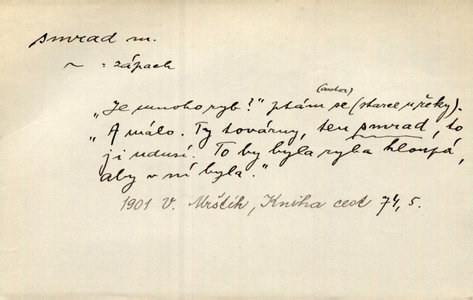 smrad m.
~ : zápach
(autor)
„Je mnoho ryb?" ptám se (starce u řeky).
„A málo. Ty továrny, ten smrad, to
ji udusí. To by byla ryba hloupá,
aby v ní byla."
1901 V. Mrštík, Kniha cest 74, 5.